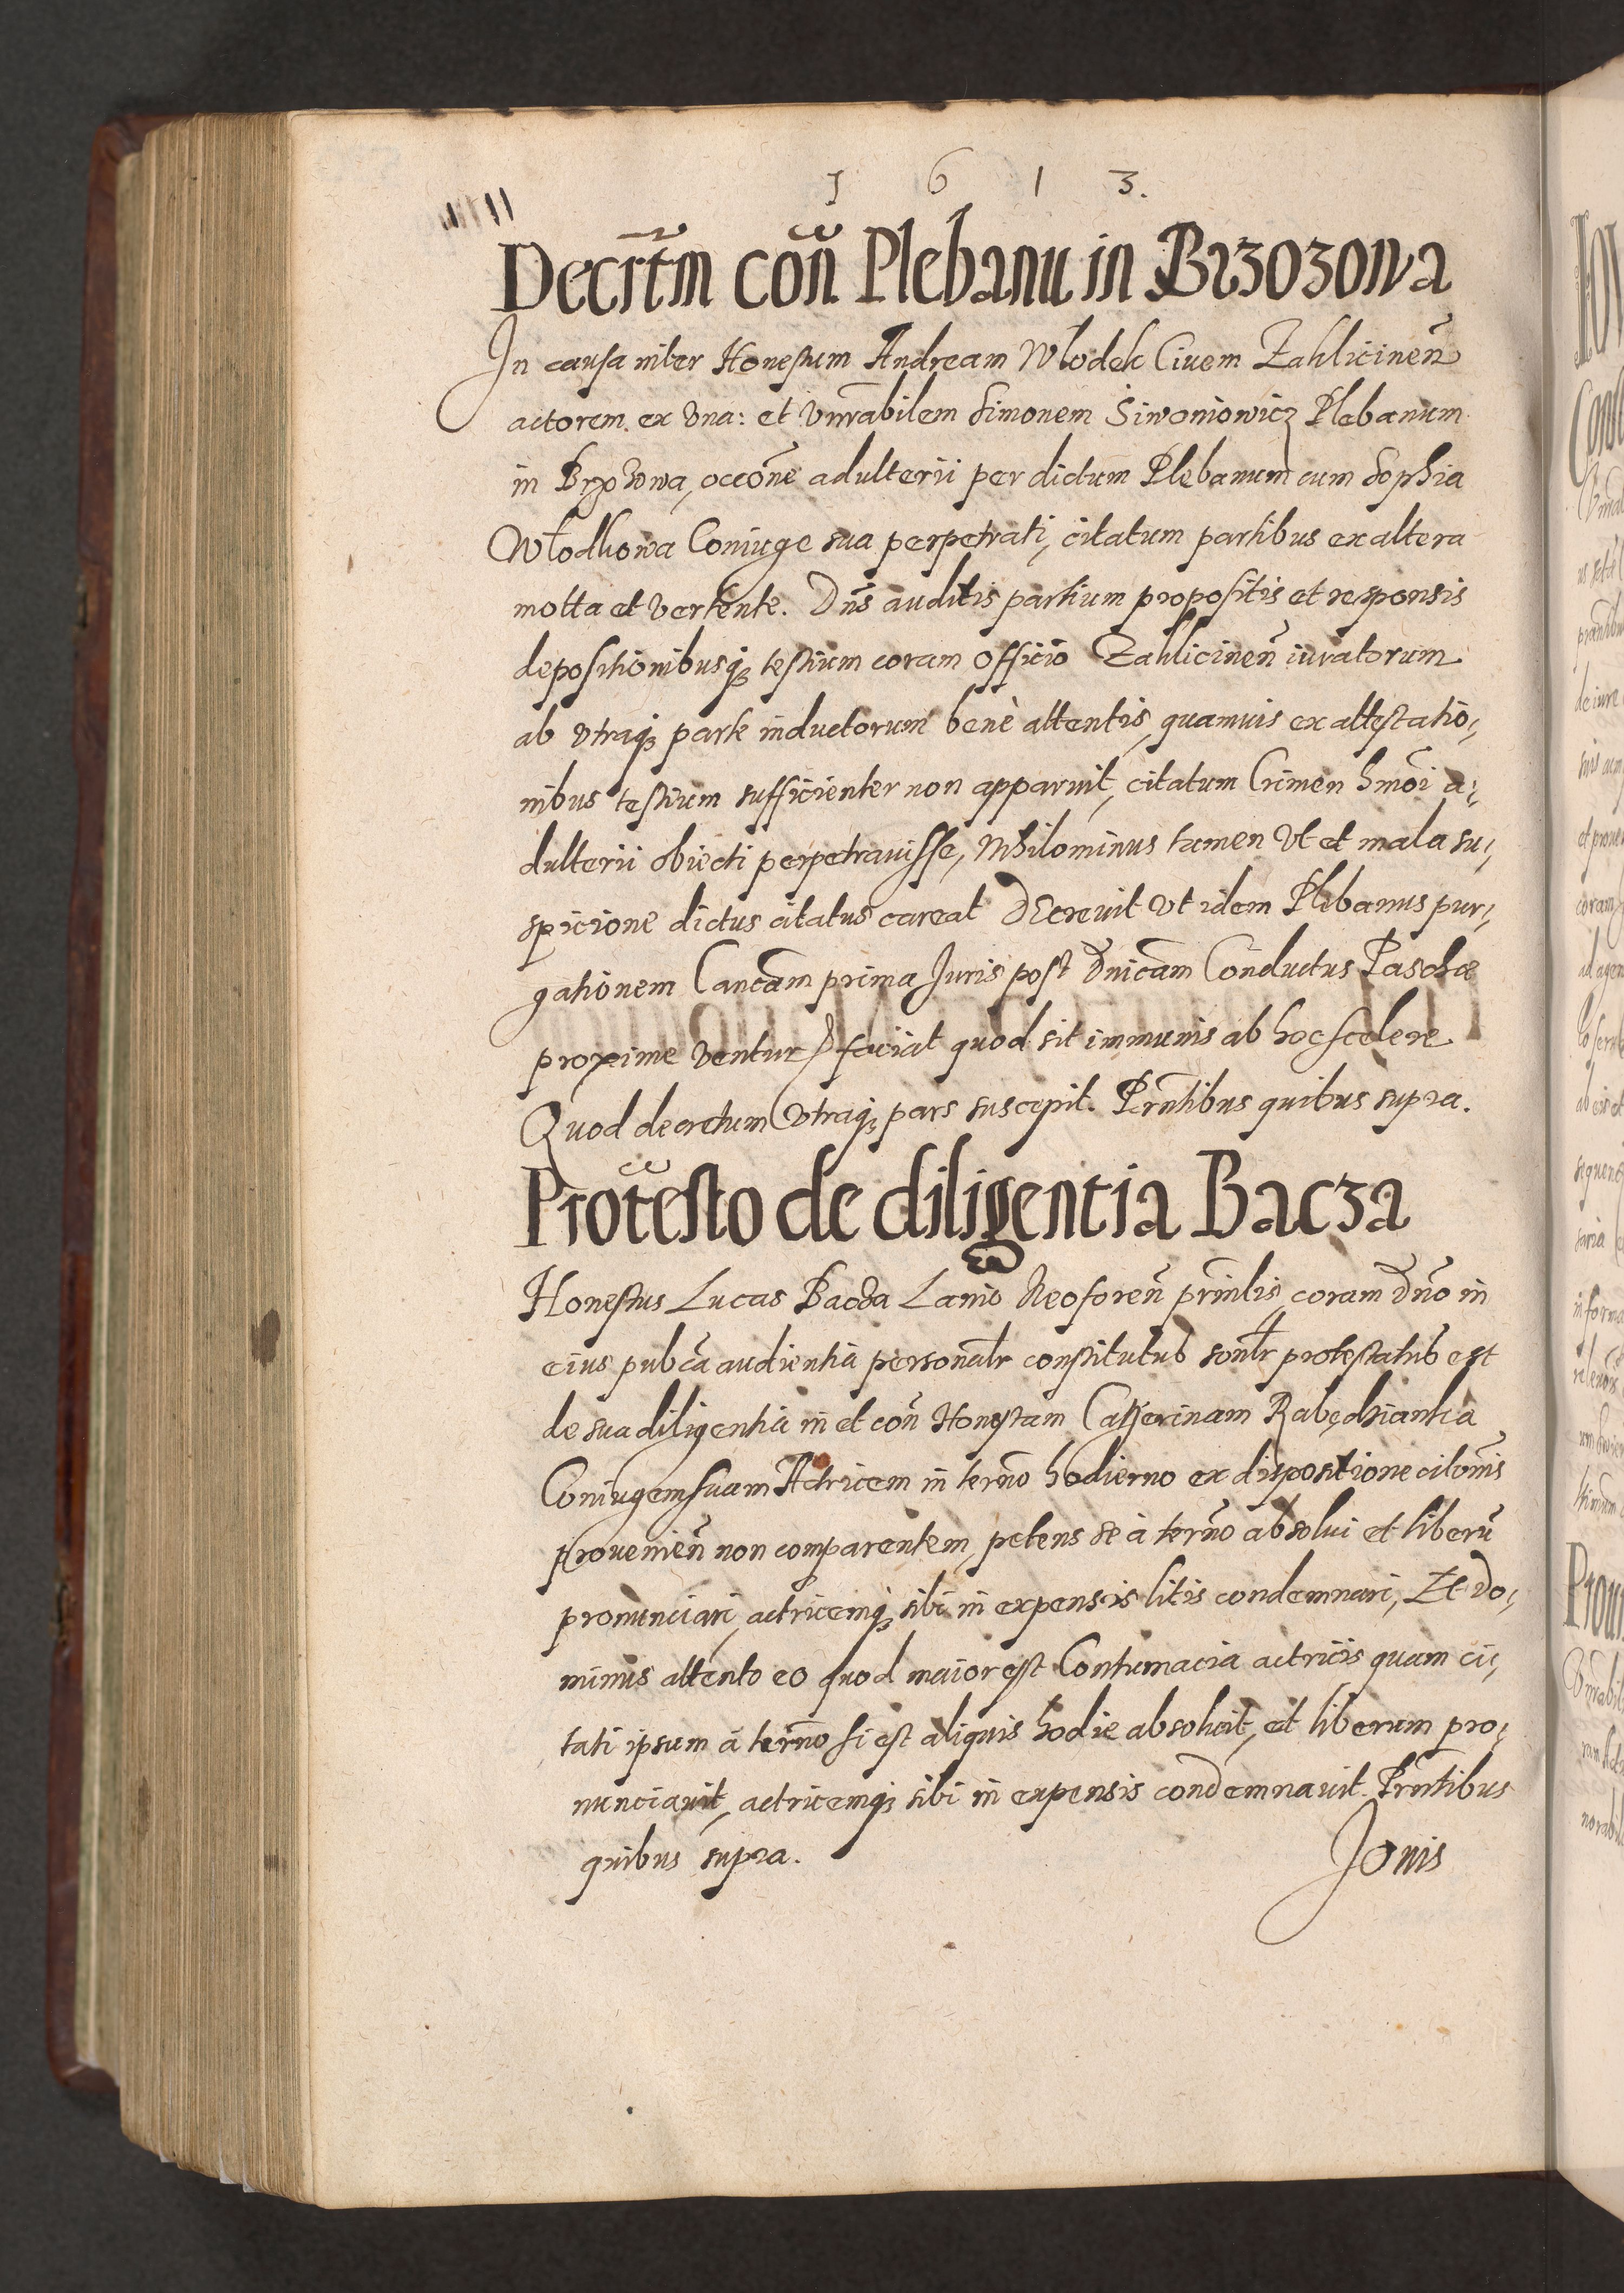 1 6 1 3.
Decrtm̄ con̄ Plebanu in Brzozowa
In causa inter Honestum Andream Włodek Ciuem Zaklicinen̄
actorem ex vna: et vnr̄abilem Simonem Siwoniowicz Plebanum
in Brzozowa, occōne adulterii per dictum Plebanum cum Sophia
Włodkowa Coniuge sua perpetrati, citatum partibus ex altera
motta et vertente. Dn̄s auditis partium propositis et responsis
depositionibusq₃ testium coram officio Zaklicinen̄ iuratorum
ab vtraq₃ parte inductorum benè attentis, quamuis ex attestatio¬
nibus testium sufficienter non apparuit, citatum Crimen hmōi a¬
dulterii obiecti perpetrauisse, Nihilominus tamen vt et mala su¬
spicione dictus citatus careat decreuit vt idem Plebanus pur¬
gationem Canc̄am prima Juris post Dnīcam Conductus Paschæ
proxime ventur faciat quod sit immunis ab hoc scelere
Quod decretum vtraq₃ pars suscepit. Prn̄tibus quibus supra.
Protēsto de diligentia Bacza
Honestus Lucas Bacza Lanio Neoforen̄ prn̄lis coram Dn̄o in
eius pubc̄a audientia personalr̄ constitutus sonlr̄ protestatus est
de sua diligentia in et con̄ Honestam Catherinam Rabędzianka
Coniugem suam Actricem in termo hodierno ex dispositione citōnis
prouenien̄ non comparentem, petens se à termo absolui et liberū
pronunciari, actricemq₃ sibi in expensis litis condemnari, Et Do¬
minus attento eo quod maior est Contumacia actricis quam ci¬
tati ipsum à termo si est aliquis hodie absoluit, et liberum pro¬
nunciauit, actricemq₃ sibi in expensis condemnauit. Prn̄tibus
quibus supra.
Jouis